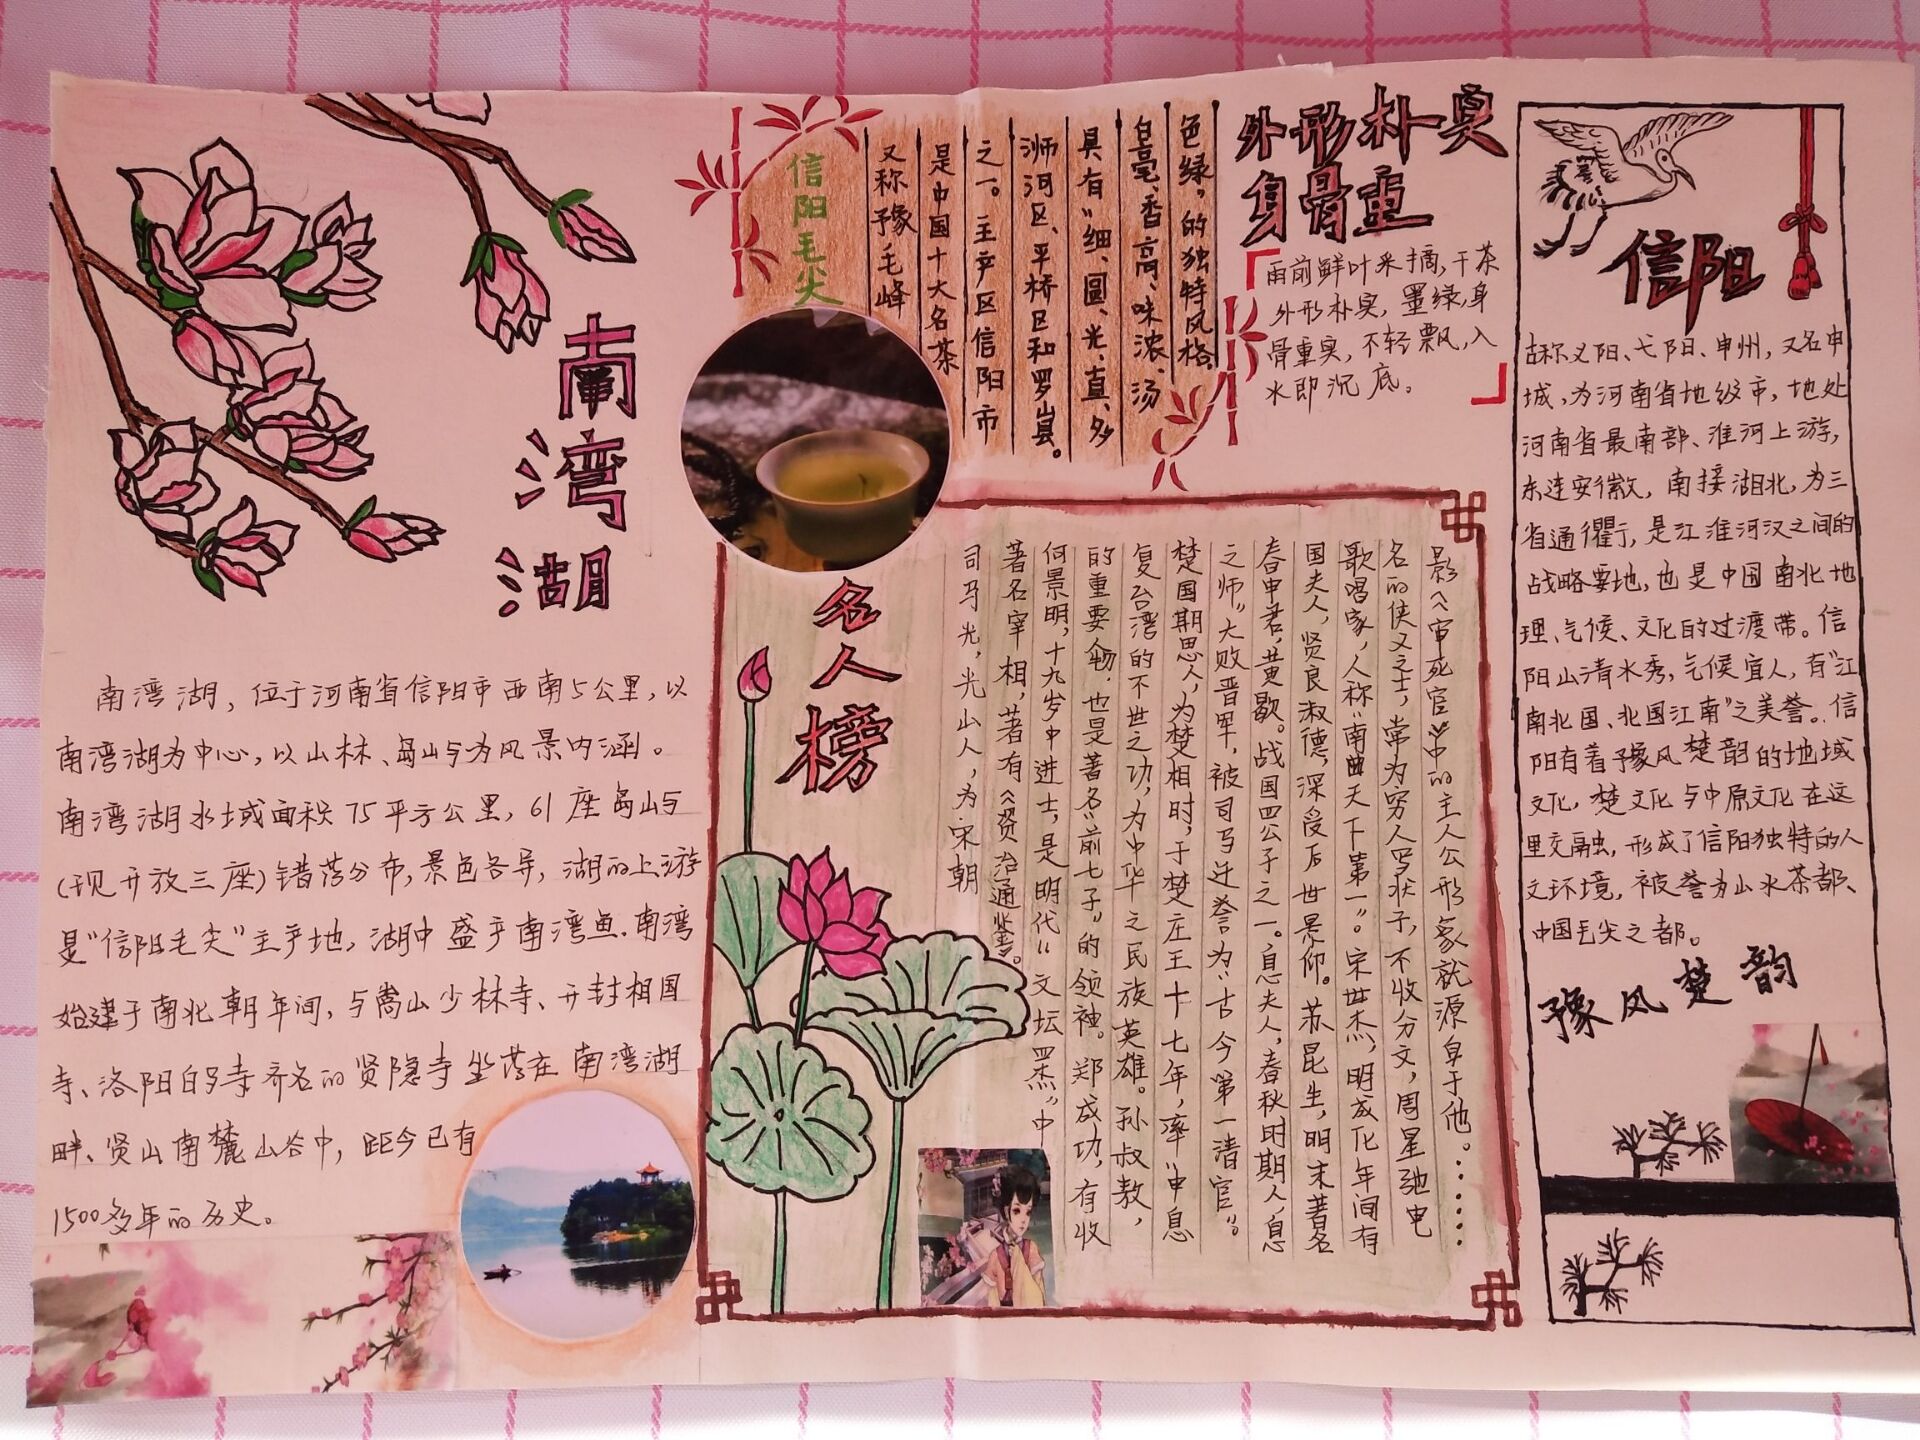 南湾湖
南湾湖，位于河南省信阳市西南5公里，以
南湾湖为中心，以山林、岛屿为风景内涵。
南湾湖水域面积75平方公里，61座岛屿
(现开放三座)错落分布，景色各异，湖的上游
是“信阳毛尖”主产地，湖中盛产南湾鱼.南湾
始建于南北朝年间，与嵩山少林寺、开封相国
寺、洛阳白马寺齐名的贤隐寺坐落在南湾湖
畔、贤山南麓山谷中，距今已有
1500多年的历史。
信阳毛尖
又称豫毛峰
是中国十大名茶
之一。主产区信阳市
浉河区、平桥区和罗山县。
具有“细、圆、光、直、多
白毫、香高、味浓、汤
色绿”的独特风格。
外形朴实
身骨重
雨前鲜叶采摘，干茶
外形朴实，墨绿，身
骨重实，不轻飘，入
水即沉底。
名人榜
司马光，光山人，为宋朝
著名宰相，著有《资治通鉴》。
何景明，十九岁中进士，是明代“文坛四杰”中
的重要人物，也是著名“前七子”的领袖。郑成功，有收
复台湾的不世之功，为中华之民族英雄。孙叔敖，
楚国期思人，为楚相时，于楚庄王十七年，率“申息
之师”大败晋军，被司马迁誉为“古今第一清官”。
春申君，黄歇。战国四公子之一。息夫人，春秋时期人，息
国夫人，贤良淑德，深受后世景仰。苏昆生，明末著名
歌唱家，人称“南曲天下第一”。宋世杰，明成化年间有
名的侠义之士，常为穷人写状子，不收分文，周星驰电
影《审死官》中的主人公形象就源自于他。……
信阳
古称义阳、弋阳、申州，又名申
城，为河南省地级市，地处
河南省最南部、淮河上游，
东连安徽，南接湖北，为三
省通衢，是江淮河汉之间的
战略要地，也是中国南北地
理、气候、文化的过渡带。信
阳山清水秀，气候宜人，有“江
南北国、北国江南”之美誉。信
阳有着豫风楚韵的地域
文化，楚文化与中原文化在这
里交融，形成了信阳独特的人
文环境，被誉为山水茶都、
中国毛尖之都。
豫风楚韵